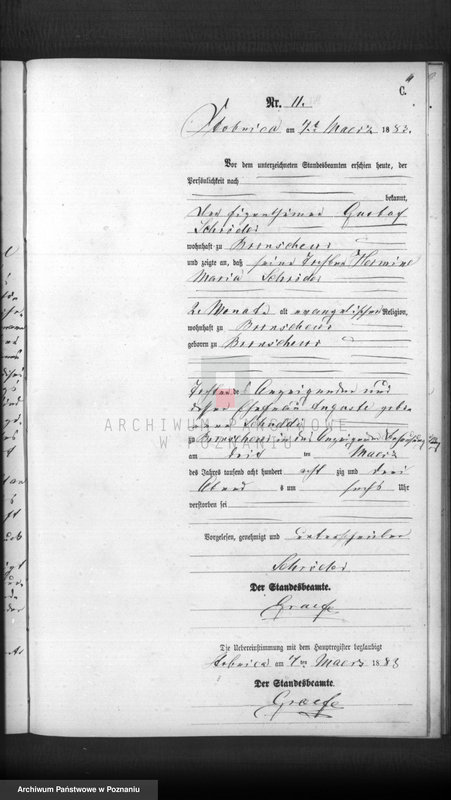 C.
Nr. 11.
Stobnica am 7ten Maerz 1883.
Vor dem unterzeichneten Standesbeamten erschien heute, der
Persönlichkeit nach
bekannt,
der Eigenthümer Gustav
Schröder
wohnhaft zu
und zeigte an, daß seine Tochter Hermine
Maria Schröder
2 Monat alt evangelischer Religion,
wohnhaft zu
geboren zu
Tochter des Anzeigenden und
dessen Ehefrau Auguste gebo
ARCHIWUM PAŃSTWOWE
W POZNANIU
zu in des Anzeigenden Behausung
am drit ten Maerz
des Jahres tausend acht hundert acht zig und drei
Abend s um sechs Uhr
verstorben sei
Vorgelesen, genehmigt und unterschrieben
Schröder
Der Standesbeamte.
Graefe
Die Uebereinstimmung mit dem Hauptregister beglaubigt
Stobnica am 7ten Maerz 1883
Der Standesbeamte.
Graefe
Archiwum Państwowe w Poznaniu